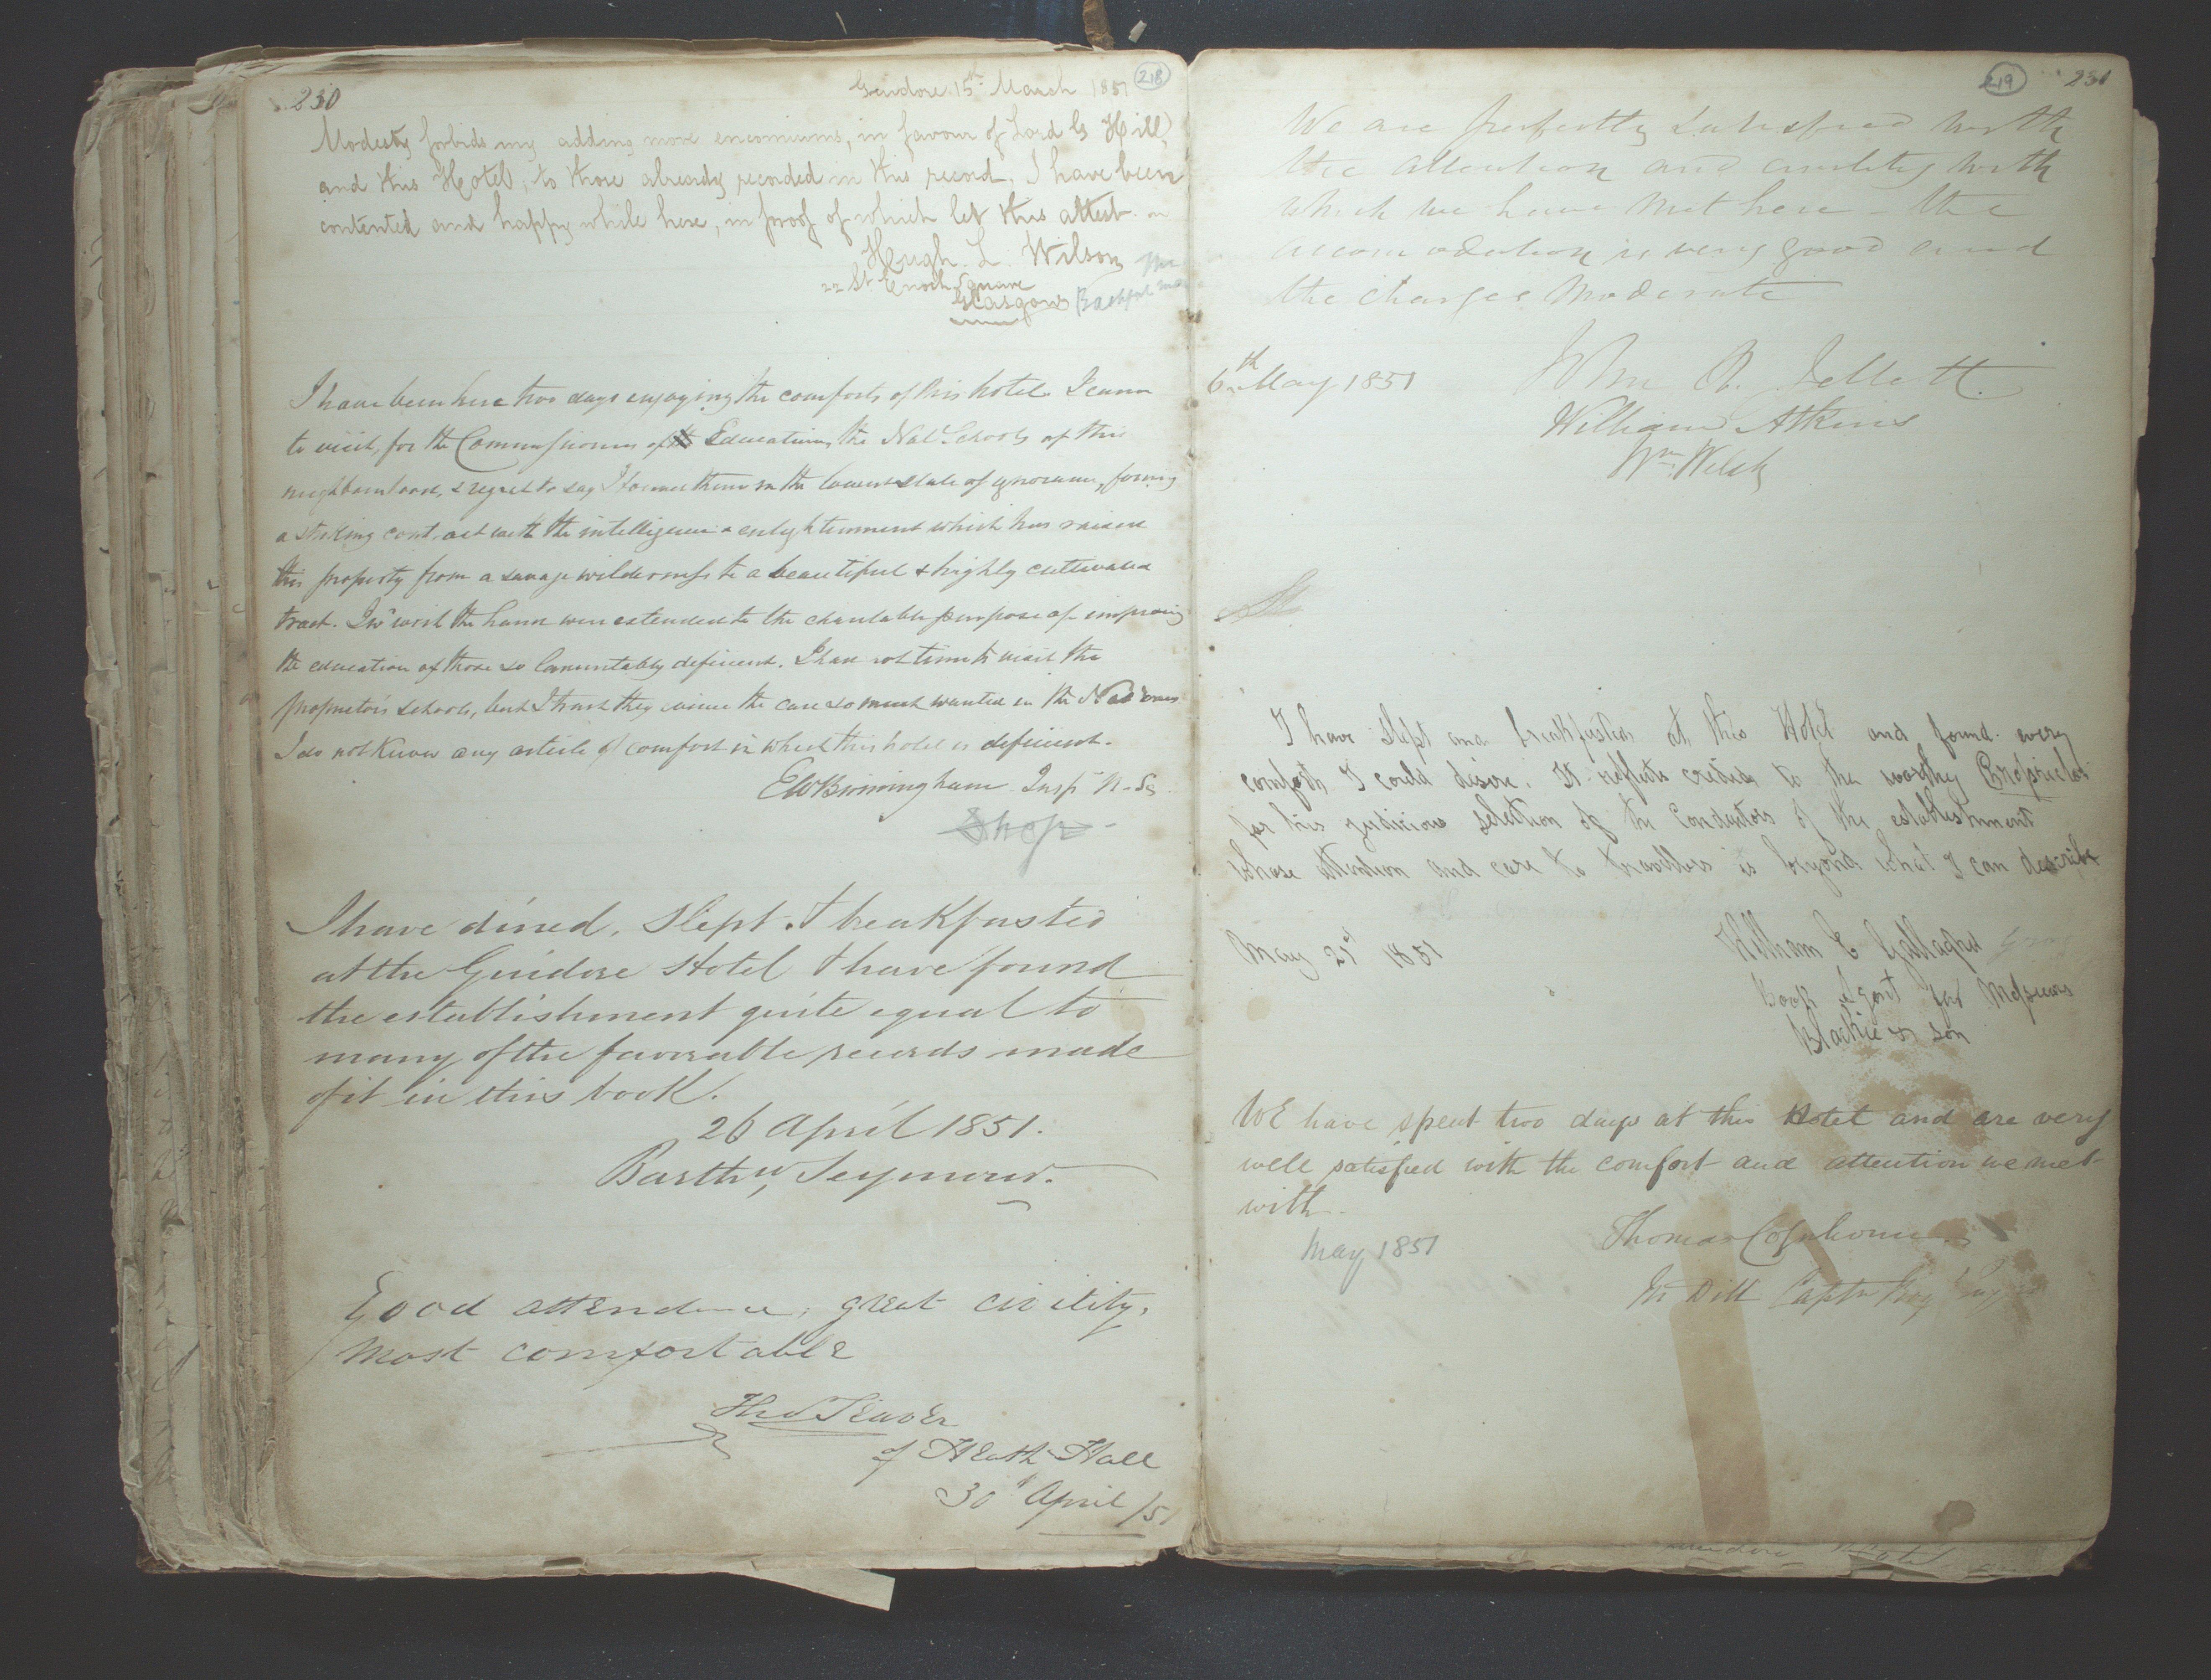 230
218
Gweedore 15th March 1851
Modesty forbids my adding more encomiums, in favour of Lord G Hill,
and this Hotel, to those already recorded in this record, I have been
contented and happy while here, in proof of which let this attest
Hugh L. Wilson
22 St Enoch Square
Glasgow
Bashful man
I have been here two days enjoying the comforts of this hotel. I came
to visit, for the Commissioners of Education, the Natl Schools of this
neighbourhood, & regret to say I found them in the lowest state of ignorance, forming
a striking contrast with the intelligence & enlightenment which has raised
this property from a savage wilderness to a beautiful & highly cultivated
tract. I wd wish the hand were extended to the charitable purpose of improving
the education of those so lamentably deficient. I have not time to visit the
proprietor's schools, but I trust they evince the care so much wanted in the Natl ones
I do not know any article of comfort in which this hotel is deficient.
EW Birmingham Inspr N. Ss
Shop
I have dined, Slept & breakfasted
at the Guidore Hotel & have found
the establishment quite equal to
many of the favorable records made
of it in this book.
26 April 1851.
Barthw Seymour.
Good attendance, great civility,
most comfortable
Thos Teaver
of Heath Hall
30th April /51
219
231
We are perfectly satisfied with
the attention and civility with
which we have met here - the
accomodation is very good and
the charges moderate
6th May 1851
John R. Jellett.
William Atkins
Wm Welsh
I have slept and breakfasted at this Hotel and found every
comfort I could desire. It reflects credit to the worthy Proprietor
for his judicious selection of the Conductors of the establishment
whose attention and care to travellers is beyond what I can describe
May 21st 1851
William E Gallagher
Book Agent for Messieurs
Blackie & Son
WE have spent two days at this Hotel and are very
well satisfied with the comfort and attention we met
with.
May 1851
Thomas Colquhoun
Mr Dill Captn